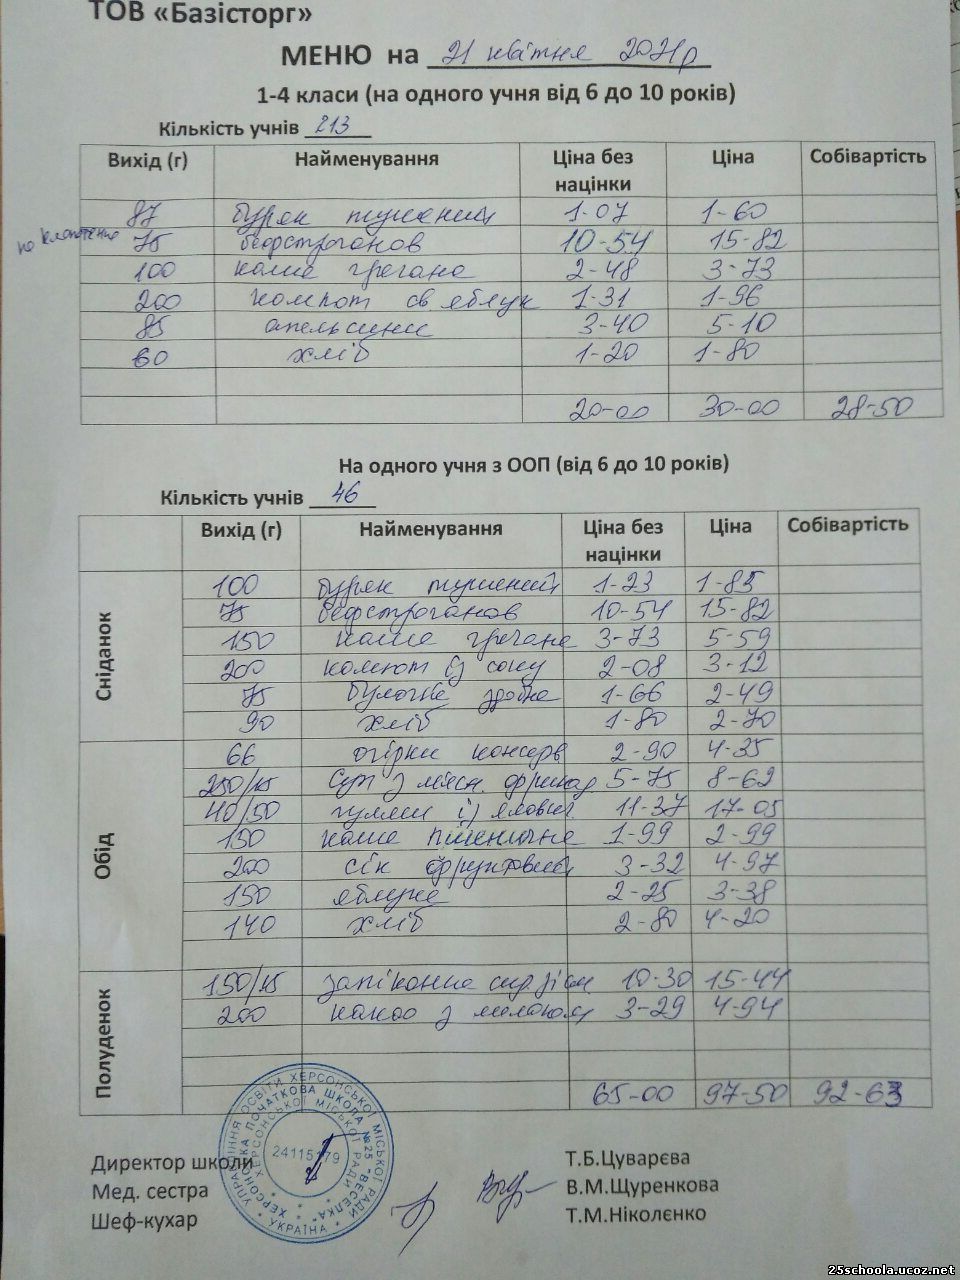 ТОВ «Базісторг»
МЕНЮ на 21 квітня 2021р
1-4 класи (на одного учня від 6 до 10 років)
Кількість учнів 213
Вихід (г) Найменування Ціна без націнки Ціна Собівартість
87 буряк тушений 1-07 1-60
75 бефстроганов 10-54 15-82
100 каша гречана 2-48 3-73
200 компот св яблук 1-31 1-96
85 апельсини 3-40 5-10
60 хліб 1-20 1-80
20-00 30-00 28-50
На одного учня з ООП (від 6 до 10 років)
Кількість учнів 46
Вихід (г) Найменування Ціна без націнки Ціна Собівартість
Сніданок
100 буряк тушений 1-23 1-85
75 бефстроганов 10-54 15-82
150 каша гречана 3-73 5-59
200 компот із соку 2-08 3-12
75 булочка здобна 1-66 2-49
90 хліб 1-80 2-70
Обід
66 огірки консерв 2-90 4-35
250/15 Суп з мясн. фрикад 5-75 8-62
40/50 гуляш із ялович. 11-37 17-05
150 каша пшенична 1-99 2-99
200 сік фруктовий 3-32 4-97
150 яблуко 2-25 3-38
140 хліб 2-80 4-20
Полуденок
150/15 запіканка сир зі см. 10-30 15-44
200 какао з молоком 3-29 4-94
65-00 97-50 92-63
УПРАВЛІННЯ ОСВІТИ ХЕРСОНСЬКОЇ МІСЬКОЇ РАДИ
ХЕРСОНСЬКА ПОЧАТКОВА ШКОЛА №25 "ВЕСЕЛКА"
ХЕРСОНСЬКОЇ МІСЬКОЇ РАДИ
24115179
* УКРАЇНА *
Директор школи Т.Б.Цуварєва
Мед. сестра В.М.Щуренкова
Шеф-кухар Т.М.Ніколєнко
25schoola.ucoz.net